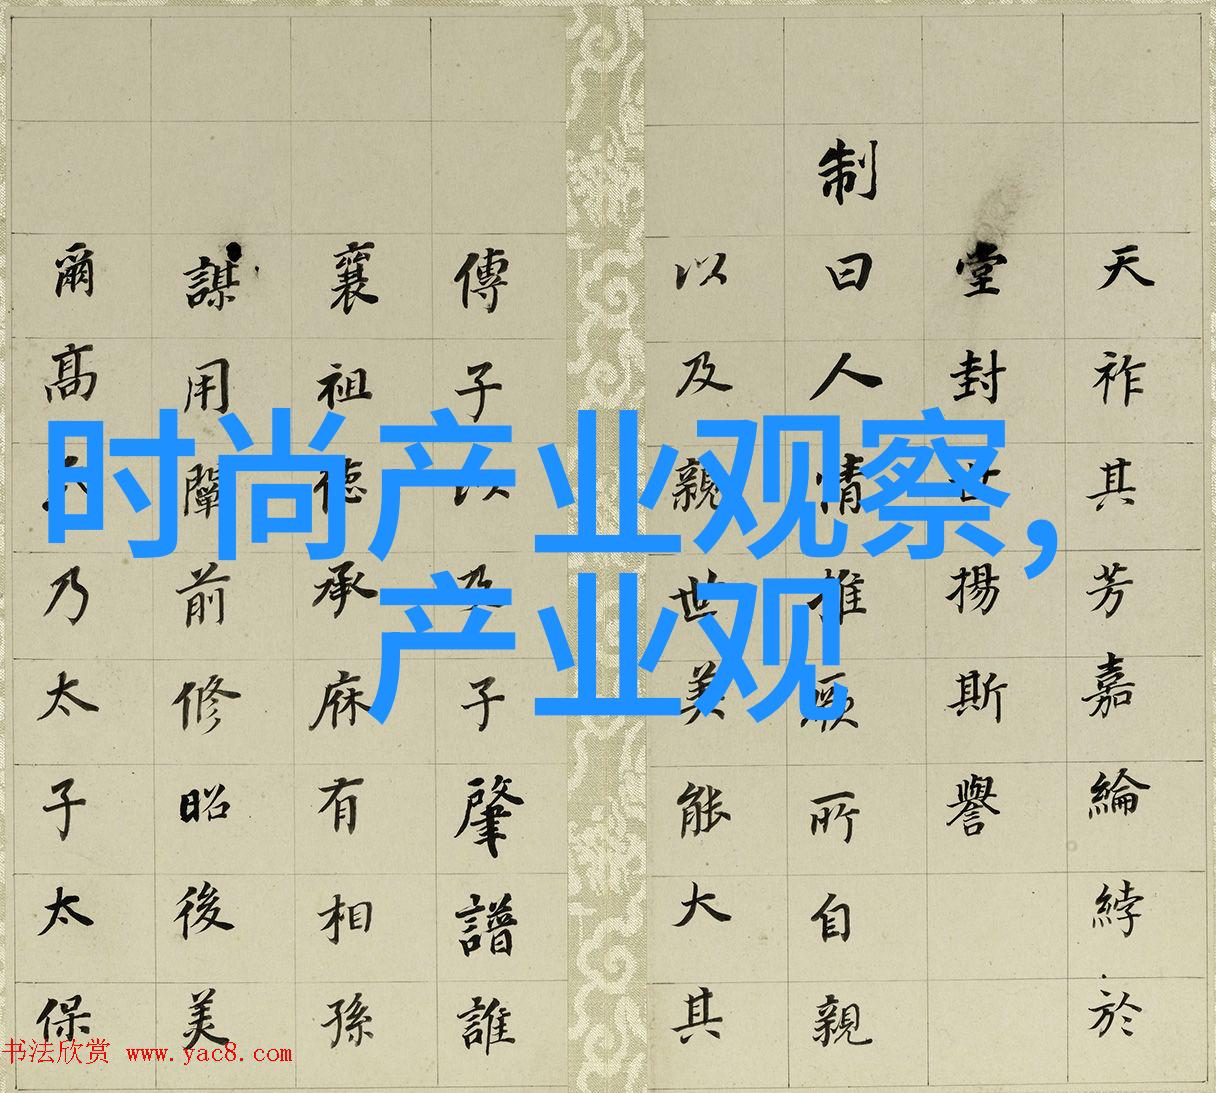 天祚其芳嘉綸綍於
堂封世揚斯譽
制曰人情推厥所自親
以及親世美能大其
傳子以及子肇譜誰
襄祖德承庥有相孫
謀用闡前修昭後美
爾高乃太子太保
时尚产业观察,
产业观
书法欣赏 www.yac8.com